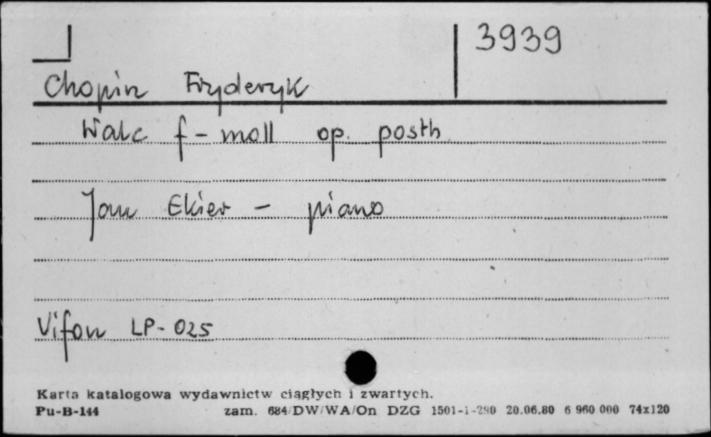 3939
Chopin Fryderyk
Walc f-moll op. posth
Jan Ekier - piano
Vifon LP-025
Karta katalogowa wydawnictw ciągłych i zwartych.
Pu-B-144 zam. 684/DW/WA/On DZG 1501-1-280 20.06.80 6 960 000 74x120